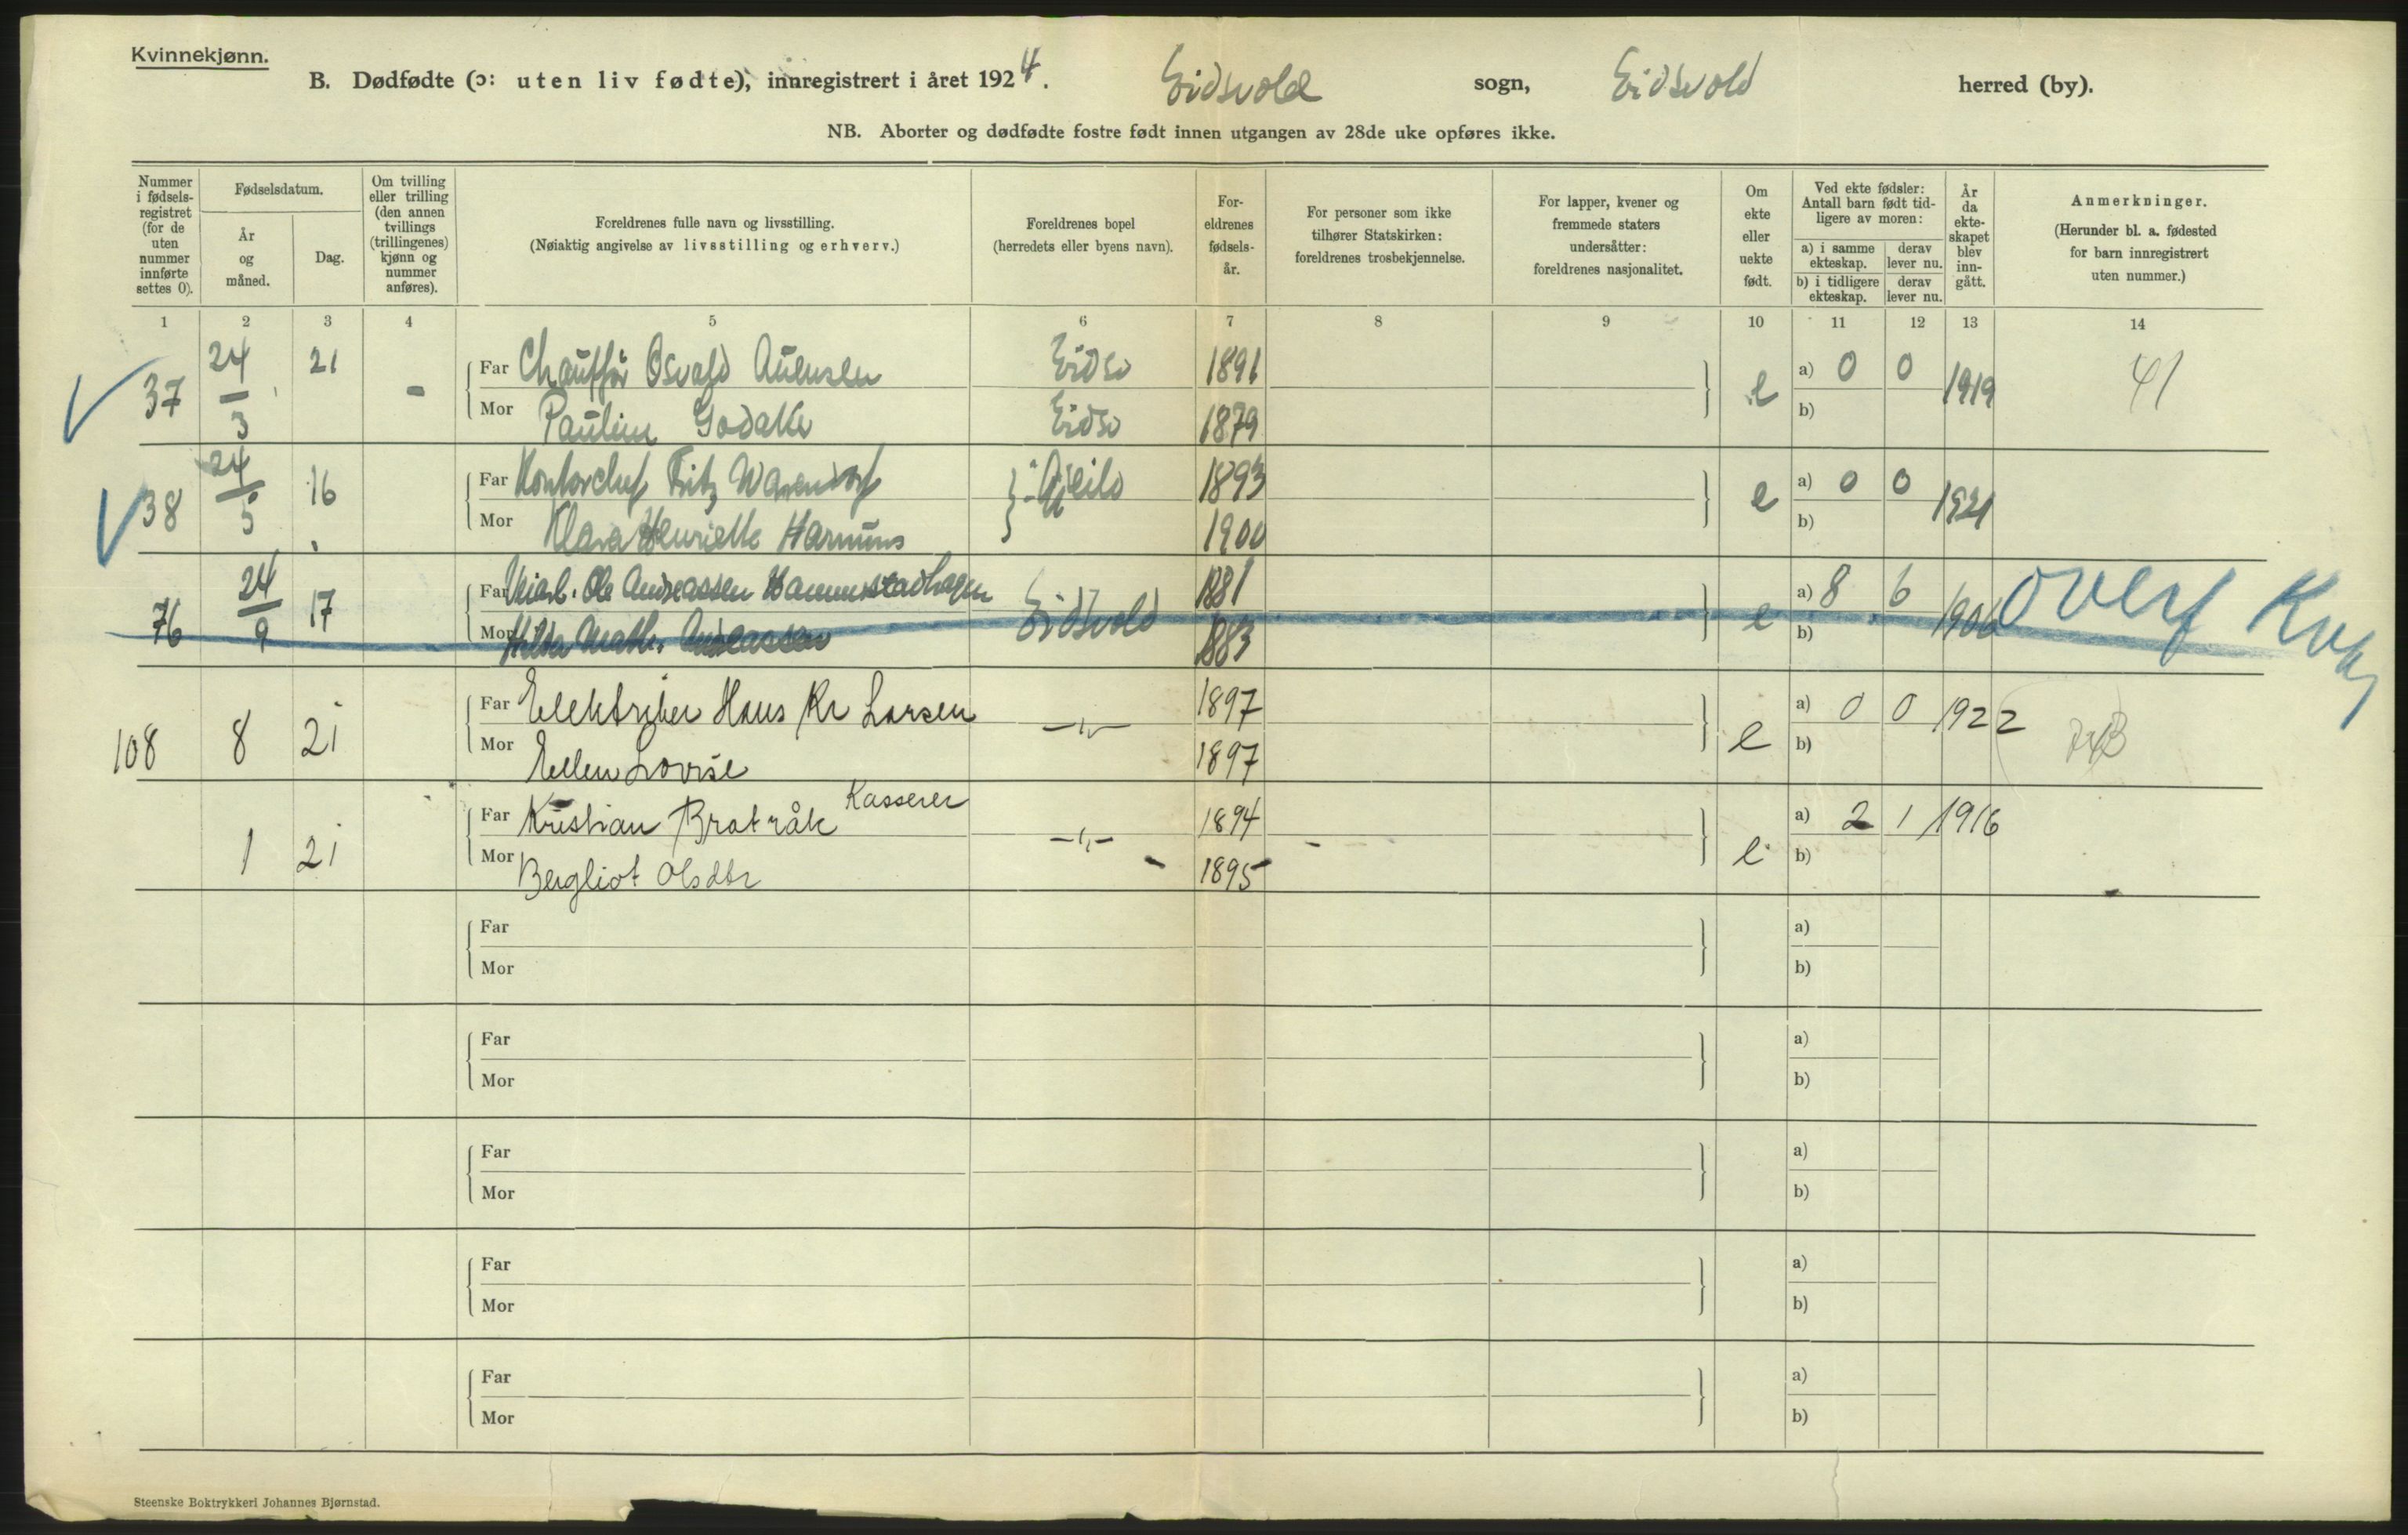 Kvinnekjønn.
B. Dødfødte (ɔ: uten liv fødte), innregistrert i året 1924. Eidsvold sogn, Eidsvold herred (by).
NB. Aborter og dødfødte fostre født innen utgangen av 28de uke opføres ikke.
Nummer i fødsels-registret (for de uten nummer innførte settes 0).
Fødselsdatum.
År og måned.
Dag.
Om tvilling eller trilling (den annen tvillings (trillingenes) kjønn og nummer anføres).
Foreldrenes fulle navn og livsstilling.
(Nøiaktig angivelse av livsstilling og erhverv.)
Foreldrenes bopel
(herredets eller byens navn).
For-eldrenes fødsels-år.
For personer som ikke tilhører Statskirken: foreldrenes trosbekjennelse.
For lapper, kvener og fremmede staters undersåtter: foreldrenes nasjonalitet.
Om ekte eller uekte født.
Ved ekte fødsler: Antall barn født tid-ligere av moren:
a) i samme ekteskap. derav lever nu.
b) i tidligere ekteskap. derav lever nu.
År da ekte-skapet blev inn-gått.
Anmerkninger.
(Herunder bl. a. fødested for barn innregistrert uten nummer.)
1 2 3 4 5 6 7 8 9 10 11 12 13 14
37 24/3 21 - Far Chauffør Osvald Eidsv 1891 e a) 0 0 1919 41
Mor Pauline Eidsv 1879 b)
38 24/5 16 Far Kontorchef Fritz Warendorf 1893 e a) 0 0 1921
Mor Klara Henriette 1900 b)
76 24/9 17 Far Ole Andreassen Hammerstadhagen Eidsvold 1881 e a) 8 6 1906 Overf
Mor Hilda Andreassen 1883 b)
108 8 21 Far Elektriker Hans Kr Larsen -"- 1897 e a) 0 0 1922
Mor Ellen Lovise 1897 b)
1 21 Far Kristian Bratråk Kasserer -"- 1894 e a) 2 1 1916
Mor Bergliot Olsdtr 1895 b)
Far a)
Mor b)
Far a)
Mor b)
Far a)
Mor b)
Far a)
Mor b)
Far a)
Mor b)
Steenske Boktrykkeri Johannes Bjørnstad.